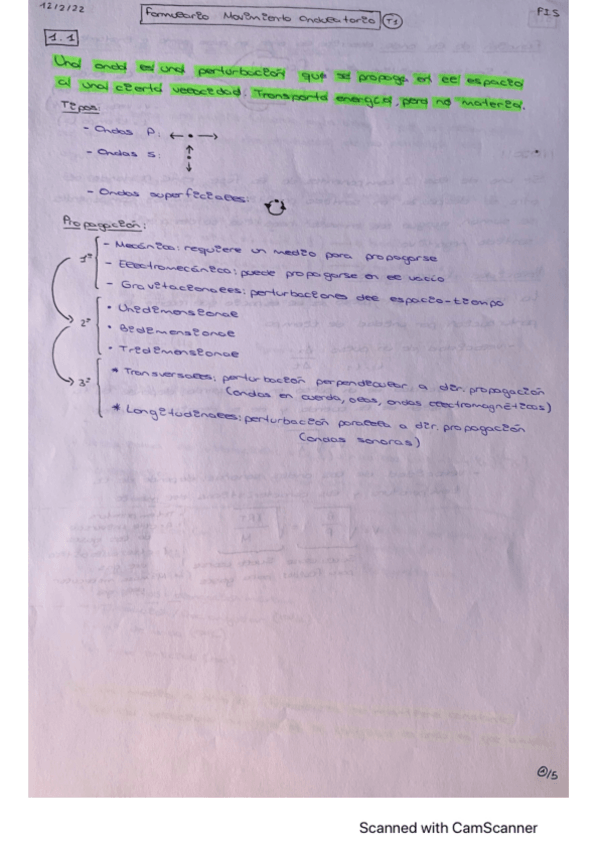 12/2/22
Formulario Movimiento Ondulatorio T1
FIS
1.1
Una onda es una perturbación que se propaga en el espacio
a una cierta velocidad. Transporta energía, pero no materia.
Tipos:
- Ondas P: ← • →
- Ondas S: ↑ • ↓
- Ondas superficiales:
Propagación:
1º - Mecánica: requiere un medio para propagarse
- Electromecánica: puede propagarse en el vacío
- Gravitacionales: perturbaciones del espacio-tiempo
2º • Unidimensional
• Bidimensional
• Tridimensional
3º * Transversales: perturbación perpendicular a dir. propagación
(ondas en cuerda, olas, ondas electromagnéticas)
* Longitudinales: perturbación paralela a dir. propagación
(ondas sonoras)
1/5
Scanned with CamScanner